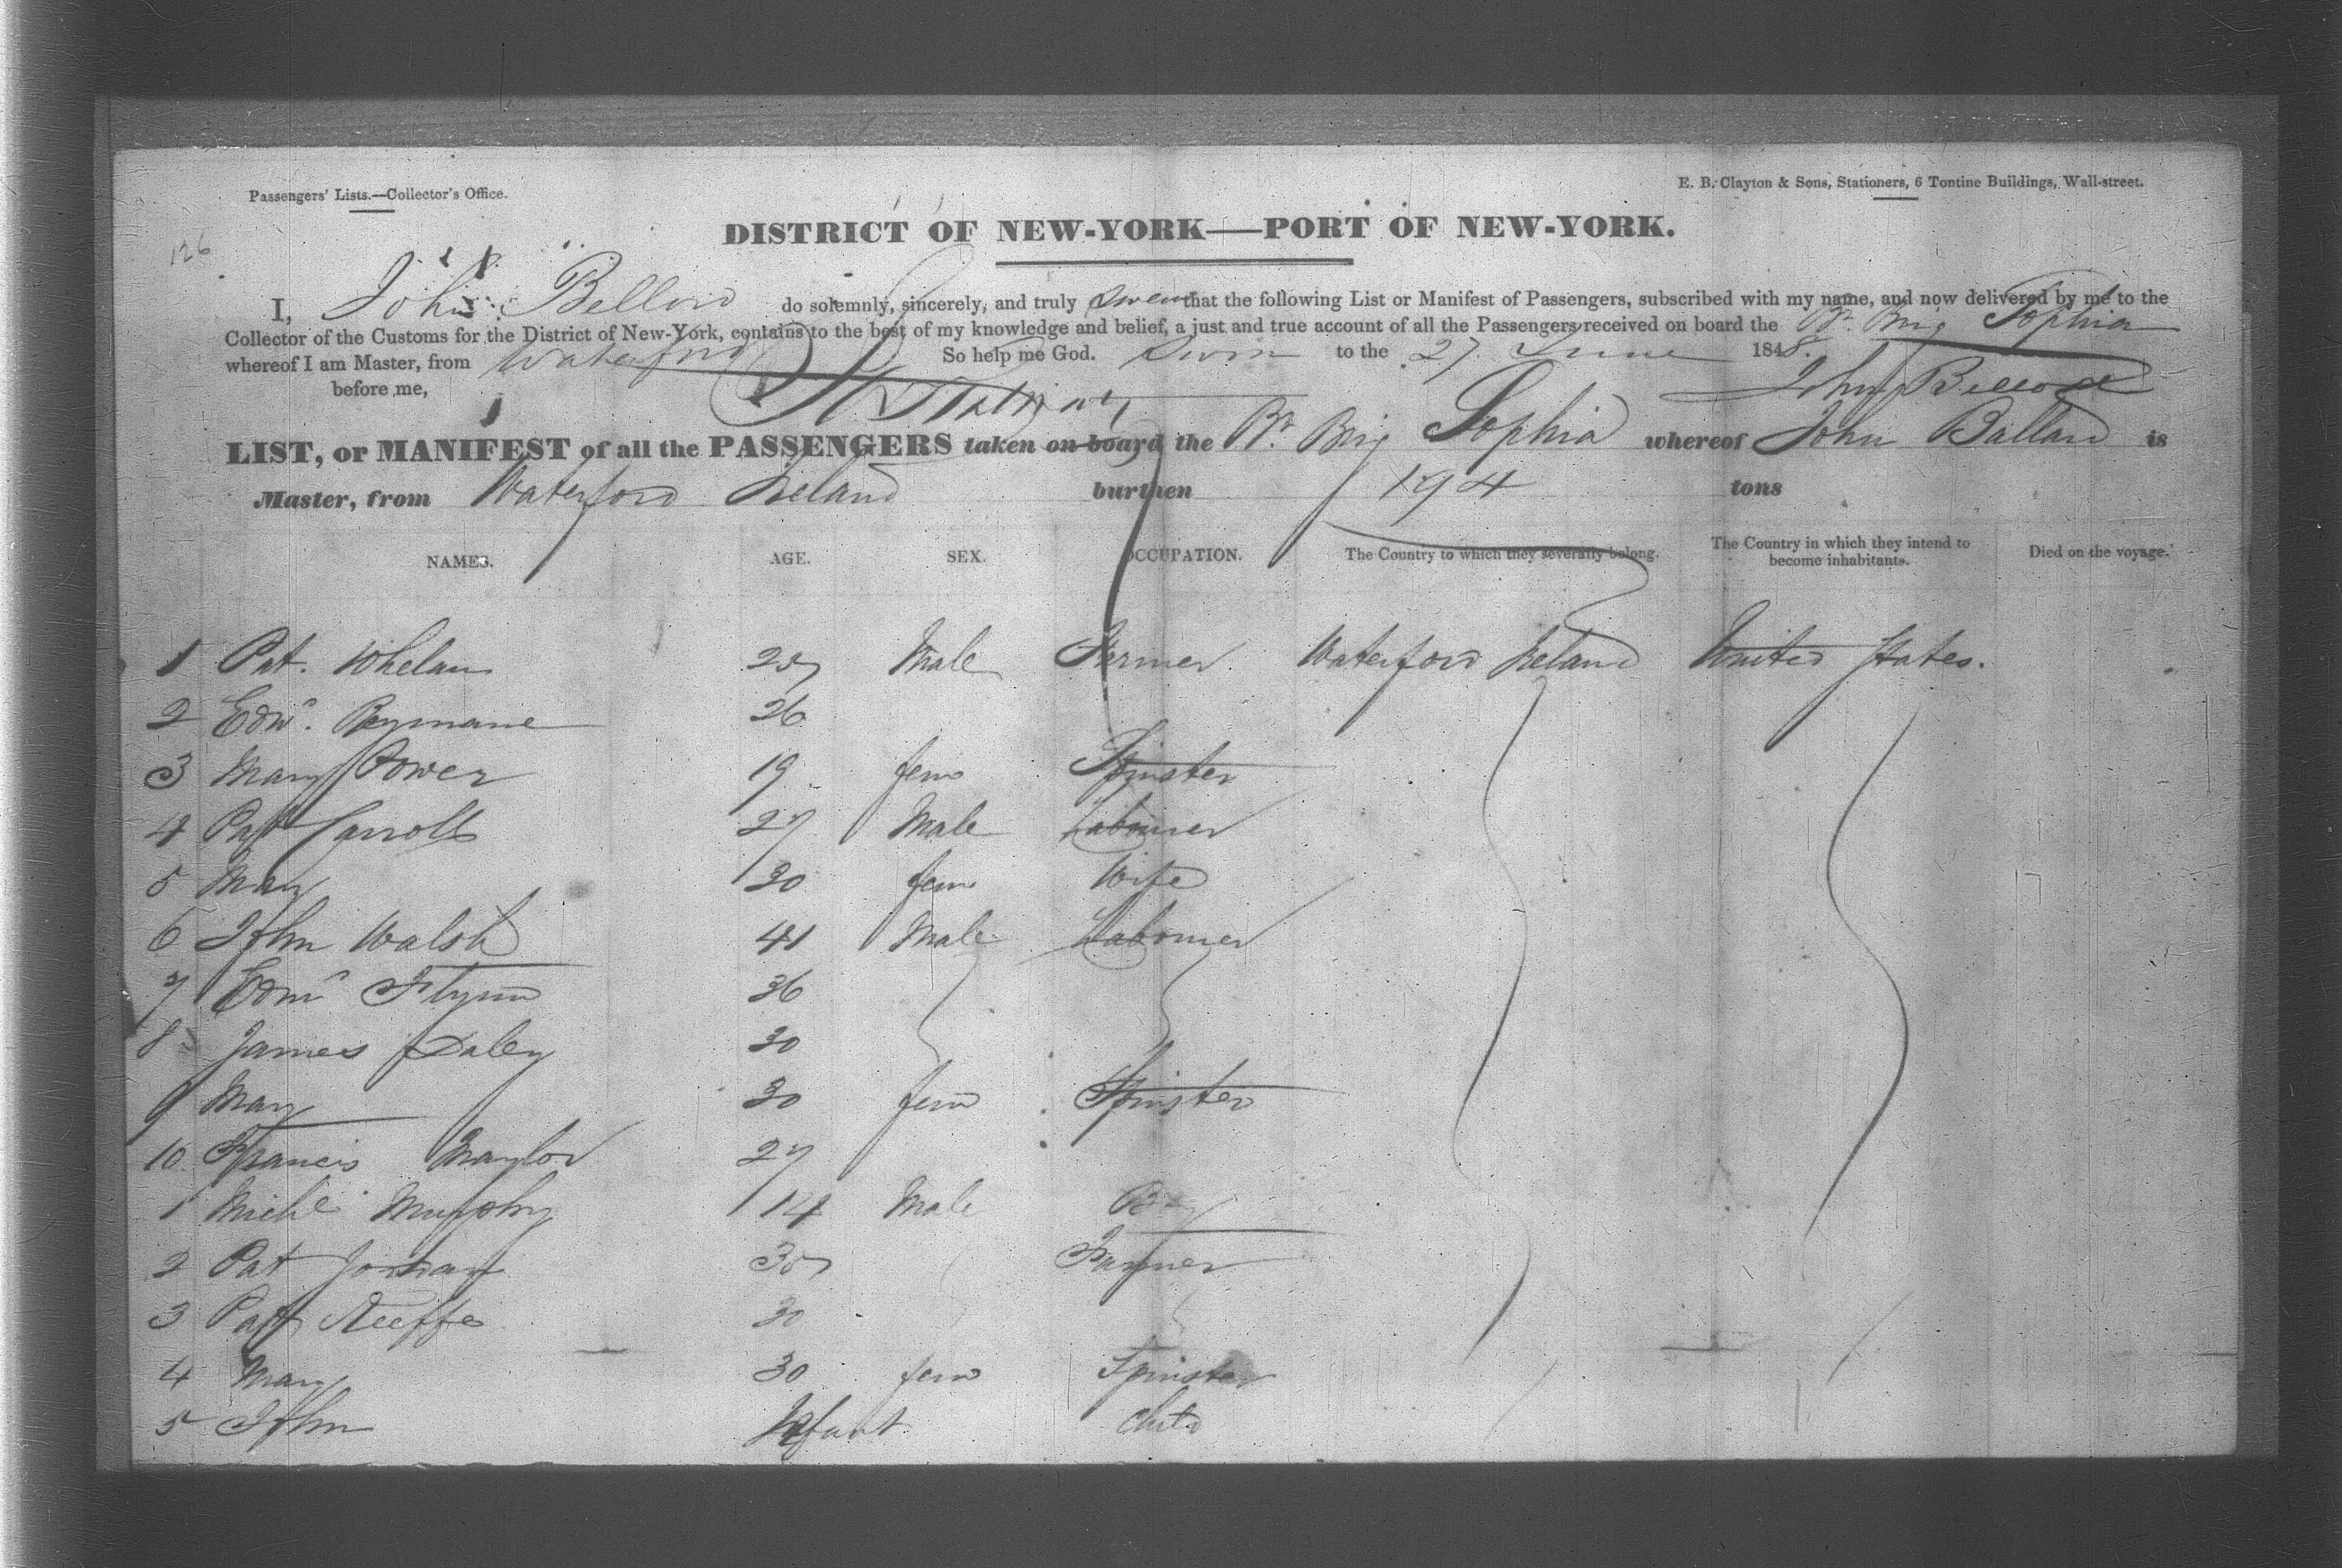 Passengers' Lists.—Collector's Office.
E. B. Clayton & Sons, Stationers, 6 Tontine Buildings, Wall-street.
126
DISTRICT OF NEW-YORK—PORT OF NEW-YORK.
I, John Bellord do solemnly, sincerely, and truly swear that the following List or Manifest of Passengers, subscribed with my name, and now delivered by me to the
Collector of the Customs for the District of New-York, contains to the best of my knowledge and belief, a just and true account of all the Passengers received on board the Br. Brig Sophia
whereof I am Master, from Waterford So help me God. Sworn to the 27 June 1848.
before me, John Bellord
LIST, or MANIFEST of all the PASSENGERS taken on board the Br. Brig Sophia whereof John Ballard is
Master, from Waterford Ireland burthen 194 tons
NAMES. AGE. SEX. OCCUPATION. The Country to which they severally belong. The Country in which they intend to become inhabitants. Died on the voyage.
1 Pat. Whelan 25 Male Farmer Waterford Ireland United States.
2 Edwd. 26
3 Mary Power 19 fem Spinster
4 Pat Carroll 27 Male Labourer
5 Mary 30 fem Wife
6 John Walsh 41 Male Labourer
7 Edmd Flynn 36
8 James Daley 30
9 Mary 30 fem Spinster
10 Francis 27
1 Michl Murphy 14 Male Boy
2 Pat Jordan 35 Farmer
3 Pat 30
4 Mary 30 fem Spinster
5 John Infant Child